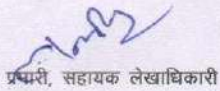 प्रभारी, सहायक लेखाधिकारी